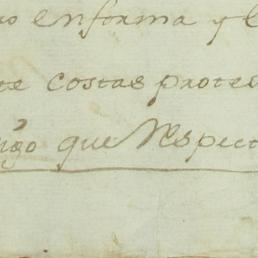 en forma y
te costas protes
digo que Respect